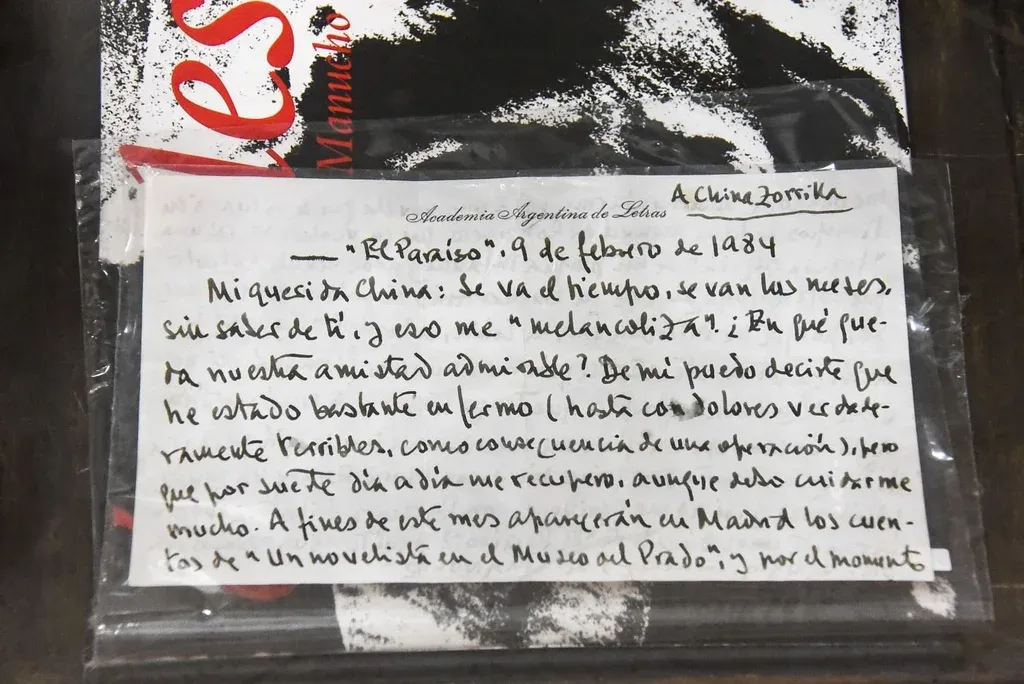 les
Manucho
A China Zorrilla
Academia Argentina de Letras
— "El Paraíso". 9 de febrero de 1984
Mi querida China: Se va el tiempo, se van los meses,
sin saber de tí, y eso me "melancoliza". ¿En qué que-
da nuestra amistad admirable? De mí puedo decirte que
he estado bastante enfermo (hasta con dolores verdade-
ramente terribles, como consecuencia de una operación), pero
que por suerte día a día me recupero, aunque debo cuidarme
mucho. A fines de este mes aparecerán en Madrid los cuen-
tos de "Un novelista en el Museo del Prado", y por el momento